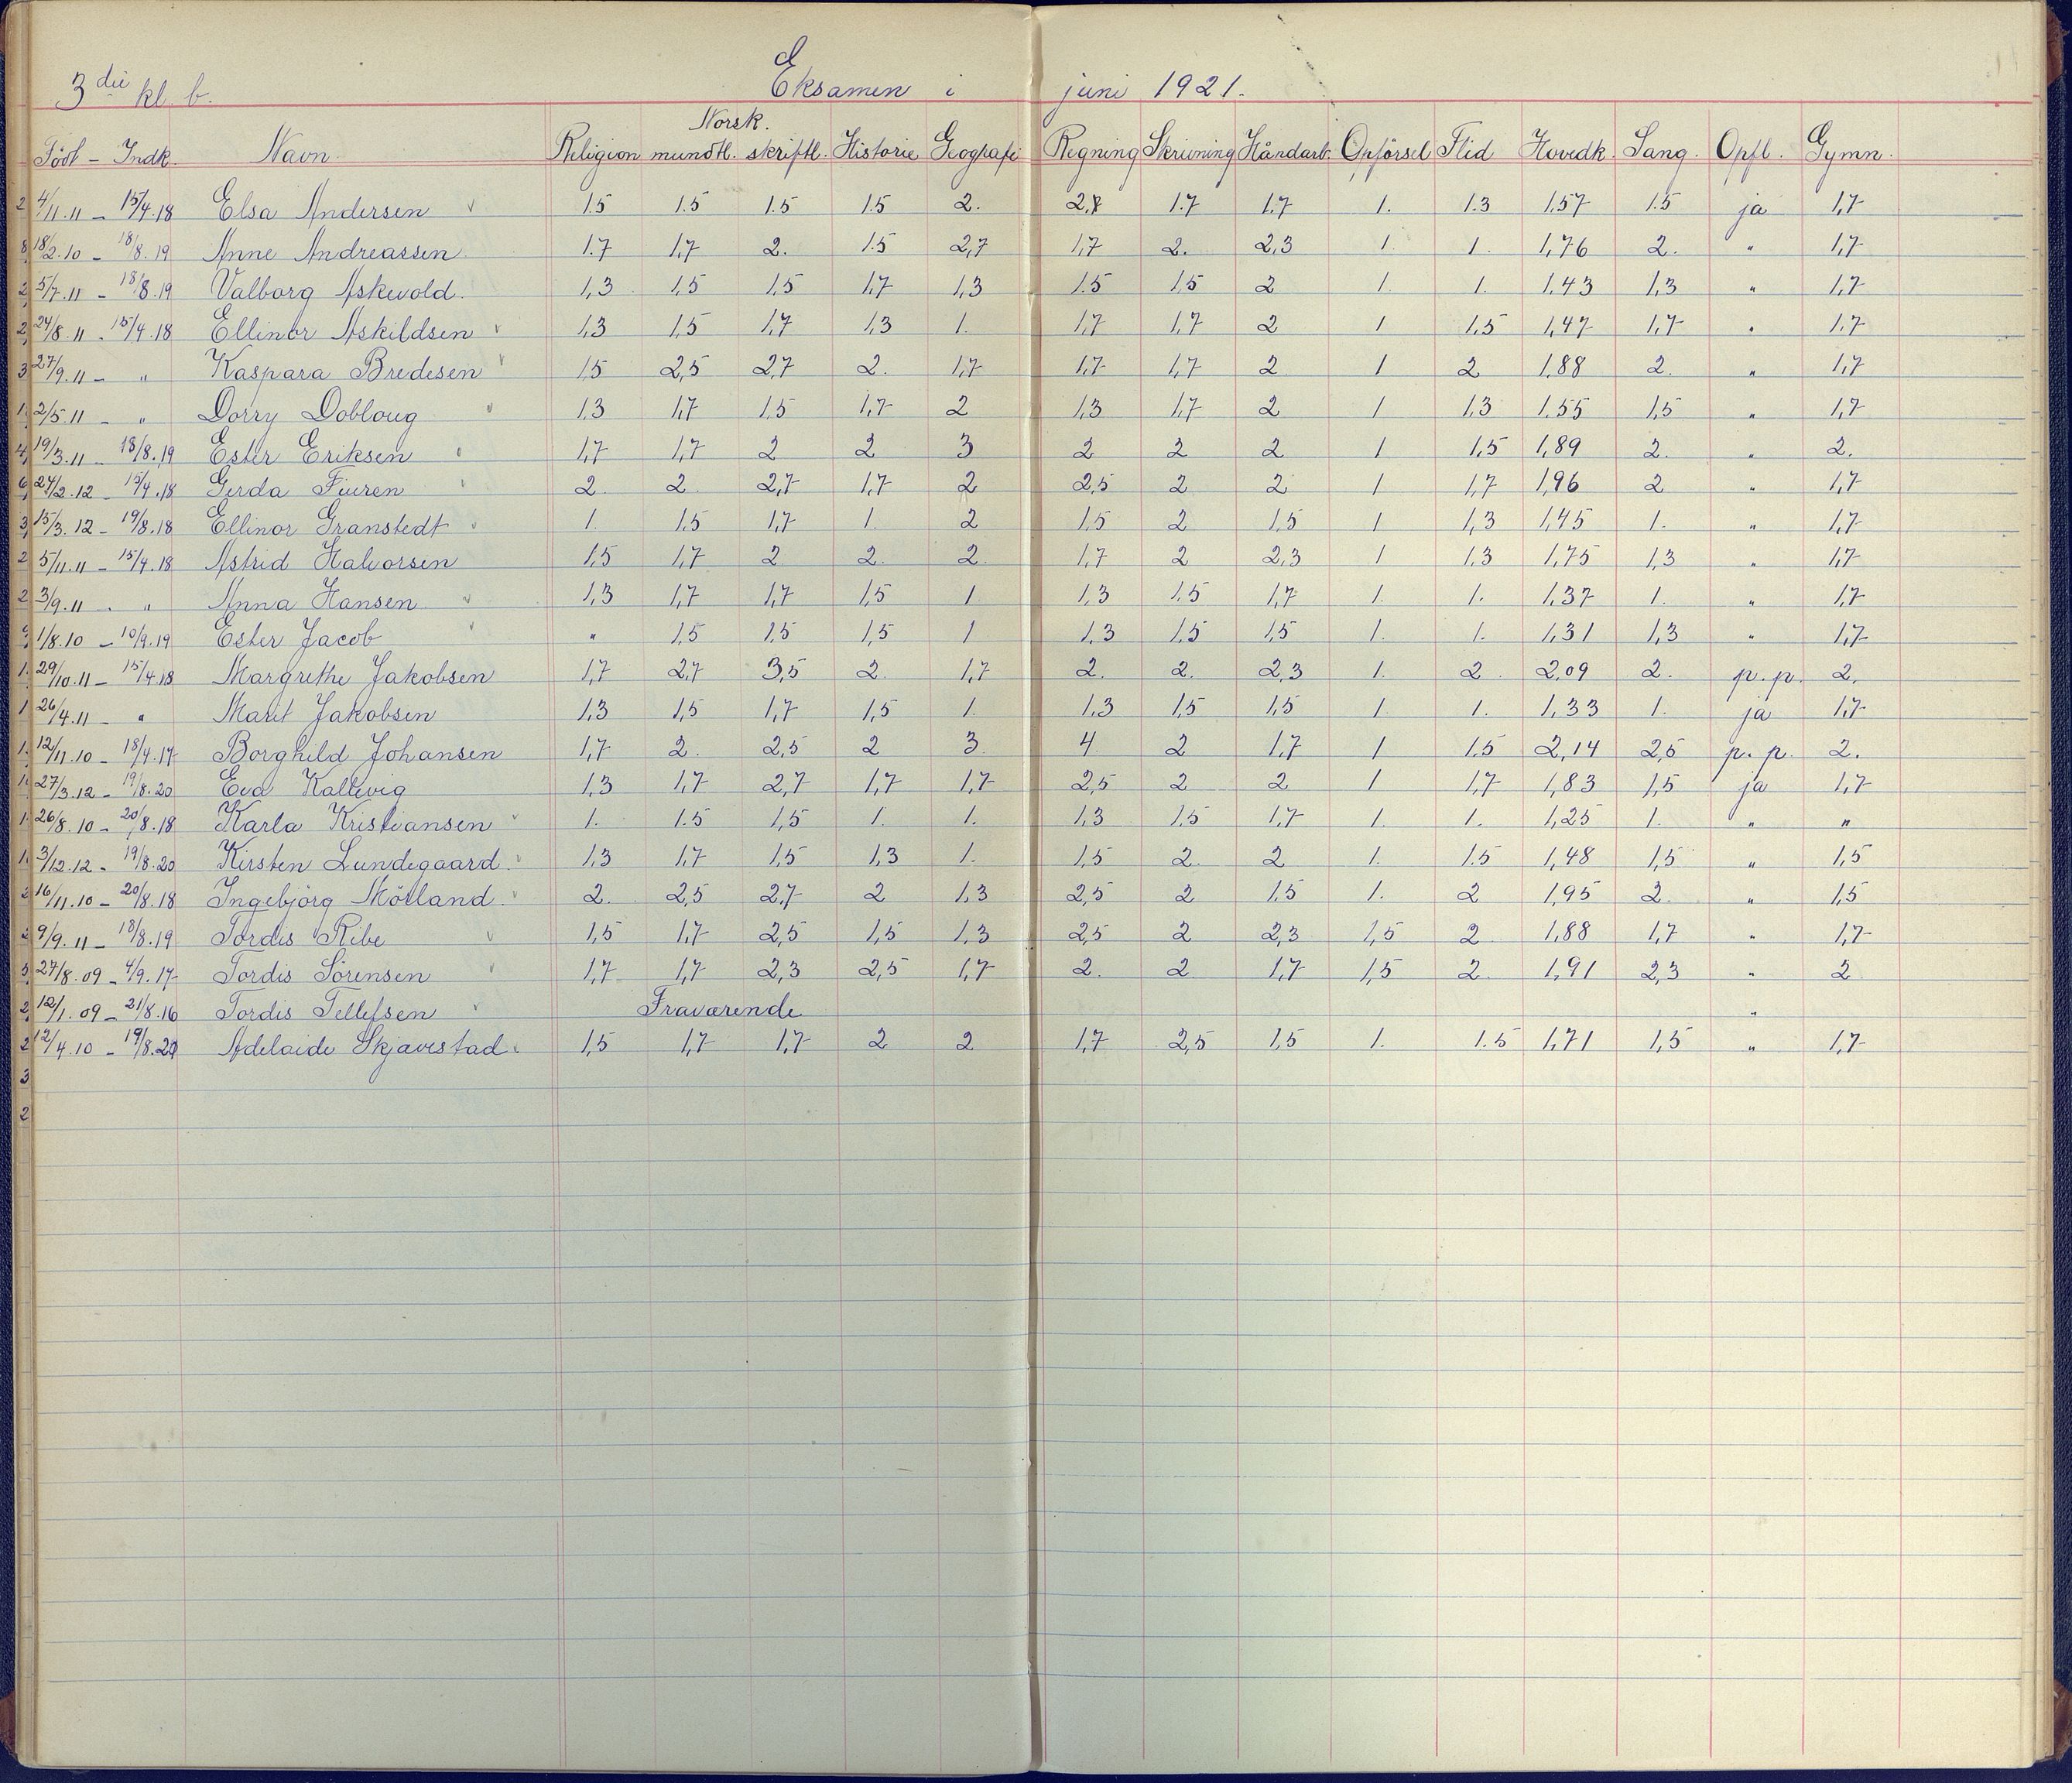 3die kl. b. Eksamen i juni 1921.
Norsk.
Född - Indk. Navn. Religion mundtl. skriftl. Historie Geografi Regning Skrivning Håndarb. Opförsel Flid Hovedk. Sang. Opfl. Gymn.
4/11.11 - 15/4.18 Elsa Andersen 1.5 1.5 1.5 1.5 2. 1.7 1.7 1. 1.3 1.57 1.5 ja 1,7
18/2.10 - 18/8.19 Anne Andreassen 1.7 1,7 2. 1.5 2,7 1,7 2. 2,3 1. 1. 1,76 2. " 1,7
5/7.11 - 18/8.19 Valborg Askevold. 1,3 1,5 1,5 1,7 1,3 1.5 1,5 2 1. 1. 1,43 1,3 " 1,7
24/8.11 - 15/4.18 Ellinor Askildsen 1,3 1,5 1,7 1,3 1. 1,7 1,7 2 1 1,5 1,47 1,7 " 1.7
27/9.11 - " Kaspara Bredesen 1,5 2,5 2,7 2. 1,7 1,7 1,7 2 1 2 1,88 2. " 1,7
2/5.11 - " Dorry Dobloug 1,3 1,7 1,5 1,7 2 1,3 1,7 2 1 1,3 1.55 1,5 " 1,7
19/3.11 - 18/8.19 Ester Eriksen 1,7 1,7 2 2 3 2 2 2 1 1,5 1,89 2. " 2.
24/2.12 - 15/4.18 Gerda Fiuren 2. 2. 2,7 1,7 2 2,5 2 2 1 1,7 1,96 2 " 1,7
15/3.12 - 19/8.18 Ellinor Granstedt 1. 1.5 1,7 1. 2 1.5 2 1,5 1 1,3 1,45 1. " 1,7
5/11.11 - 15/4.18 Astrid Halvorsen 1,5 1,7 2 2. 2. 1,7 2 2,3 1 1.3 1,75 1,3 " 1,7
3/9.11 - " Anna Hansen 1,3 1,7 1,7 1,5 1 1,3 1.5 1,7 1. 1. 1,37 1. " 1,7
1/8.10 - 10/9.19 Ester Jacob " 1,5 1,5 1,5 1 1,3 1,5 1,5 1. 1. 1,31 1,3 " 1,7
29/10.11 - 15/4.18 Margrethe Jakobsen 1,7 2,7 3,5 2. 1,7 2. 2. 2,3 1. 2 2,09 2. p.p. 2.
26/4.11 - " Marit Jakobsen 1,3 1,5 1,7 1,5 1. 1.3 1,5 1,5 1. 1. 1,33 1. ja 1,7
12/11.10 - 18/4.17 Borghild Johansen 1,7 2. 2,5 2 3. 4 2 1.7 1 1.5 2,14 2,5 p.p. 2.
27/3.12 - 19/8.20 Eva Kallevig 1,3 1,7 2,7 1,7 1,7 2,5 2 2 1 1,7 1,83 1,5 ja 1,7
26/8.10 - 20/8.18 Karla Kristiansen 1. 1.5 1,5 1. 1. 1,3 1.5 1,7 1. 1. 1,25 1. " "
3/12.12 - 19/8.20 Kirsten Lundegaard. 1,3 1,7 1,5 1,3 1. 1,5 2. 2 1. 1.5 1,48 1,5 " 1,5
16/11.10 - 20/8.18 Ingebjörg Mörland. 2. 2,5 2,7 2 1,3 2,5 2 1.5 1. 2 1,95 2. " 1,5
9/9.11 - 18/8.19 Tordis Ribe 1,5 1,7 2,5 1,5 1,3 2,5 2 2,3 1,5 2 1,88 1,7 " 1,7
27/8.09 - 4/9.17 Tordis Sörensen 1,7 1,7 2,3 2,5 1,7 2. 2 1,7 1,5 2. 1,91 2,3 " 2
12/1.09 - 21/8.16 Tordis Tellefsen Fraværende "
12/4.10 - 19/8.20 Adelaide Skjævestad. 1,5 1,7 1,7 2 2 1,7 2,5 1,5 1. 1.5 1,71 1,5 " 1,7